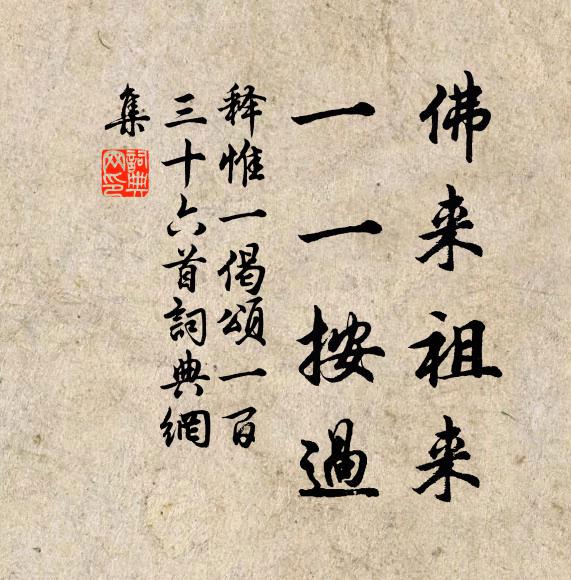 佛来祖来
一一按過
释惟一偈頌一百
三十六首詞典網
集
詞典網印